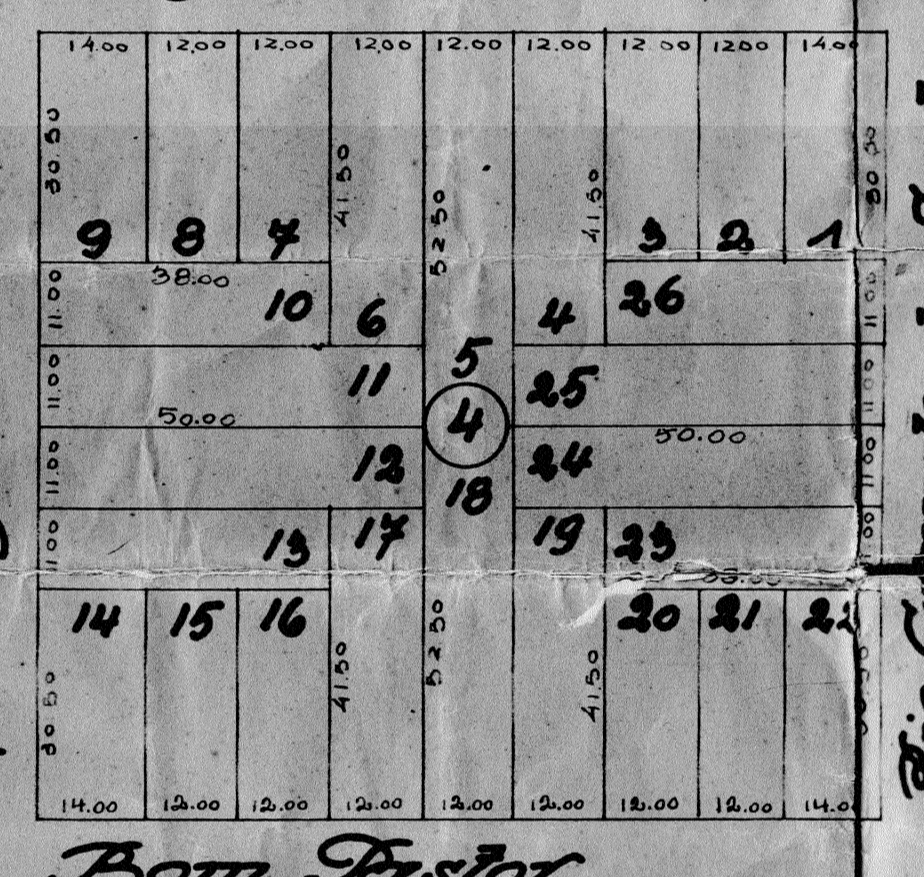 14.00 12.00 12.00 12.00 12.00 12.00 12.00 1200 14.00
30.50 41.50 52.50 41.50
9 8 7 3 2 1
38.00
11.00 10 6 4 26 11.00
5
11.00 11 25 11.00
50.00 4 50.00
11.00 12 24 11.00
18
11.00 13 17 19 23
14 15 16 20 21 22
30.50 41.50 52.50 41.50
14.00 12.00 12.00 12.00 12.00 12.00 12.00 12.00 14.0
Bom Pastor